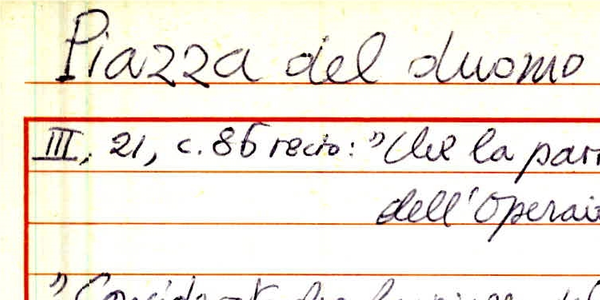 Piazza del duomo
III, 21, c. 86 recto: "Che la par
dell'Operaio
"Considerat